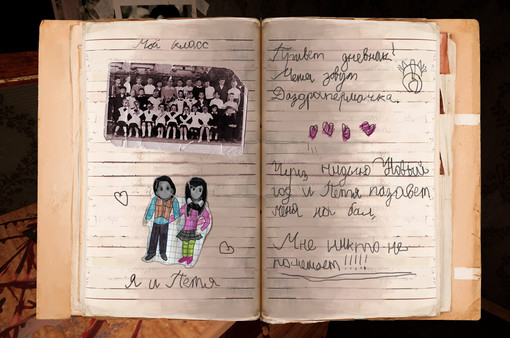 Мой класс
Я и Петя
Привет дневник!
Меня зовут
Даздрапермачка.
Через неделю Новый
год и Петя позавет
меня на бал
Мне никто не
помешает!!!!!